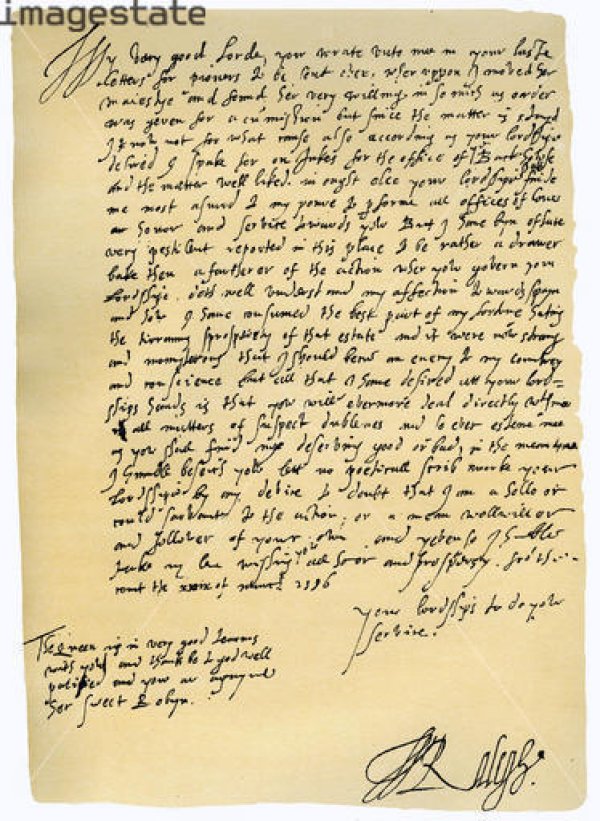 imagestate
My very good Lorde, you wrate unto mee in your laste
letters for pioners to be sent over. wheruppon I moved her
maiestye and found her very willing in so mich as order
was geven for a cummission but since the matter is stayd
I know not for what cause also according as your lordshipe
desired I spake for on Jukes for the office of the Backhowse
and the matter well liked. in ought else your lordshipe shall finde
me most assured to my poure to performe all offices of love
honor and service towards you But I have byn of late
very pestilent reported in this place to be rather a drawer
bake then a fartherer of the action wher you govern your
lordshipe doth well understand my affection towards spayn
and how I have consumed the best part of my fortune hating
the tirannus sprosperety of that estate and it were now strang
and monsterous that I should becum an enemy to my countrey
and conscience but all that I have desired att your lord=
ships hands is that you will evermore deal directly with mee
in all matters of suspect dublenes and so ever esteme mee
as you shall find my deserving good or bad, in the meane tyme
I humble beseich you lett no poeticall scrib worke your
Lordshipe by any device to doubt that I am a hollo or
could sarvant to the action, or a mean wellwiller
and follower of your own and yeven so I humble
take my leve wishing you all honor and prosperety. from the
court the xxix of march 1586
your lordships to do you
service.
W Ralegh.
The Queen is in very good tearms
with you and thank be to god well
pacified and you are agayne
her sweet Robyn.